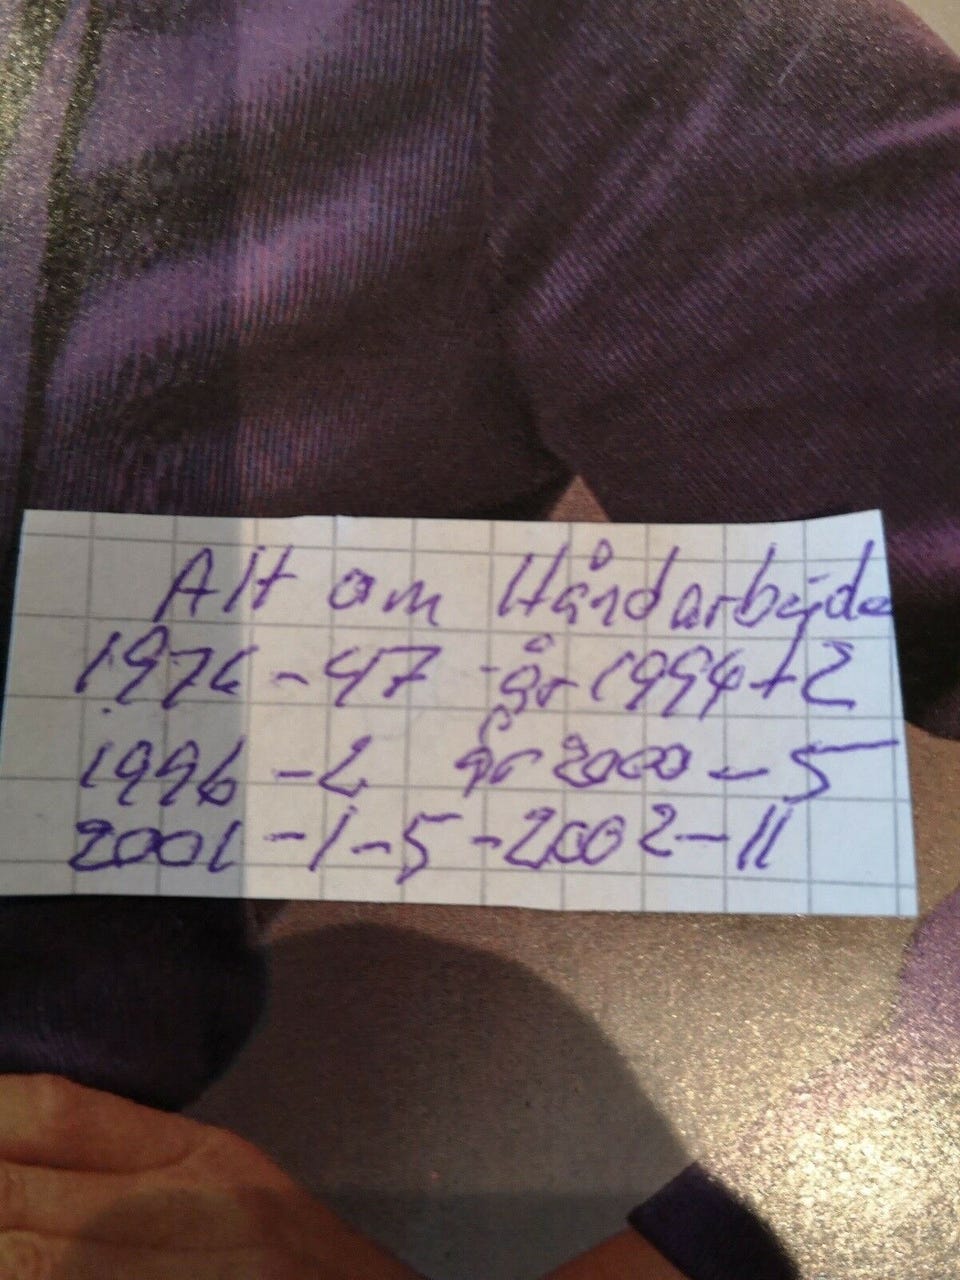 Alt om Håndarbejde
1976 - 47 - år 1994 + 2
1996 - 2 år 2000 - 5
2001 - 1 - 5 - 2002 - 11